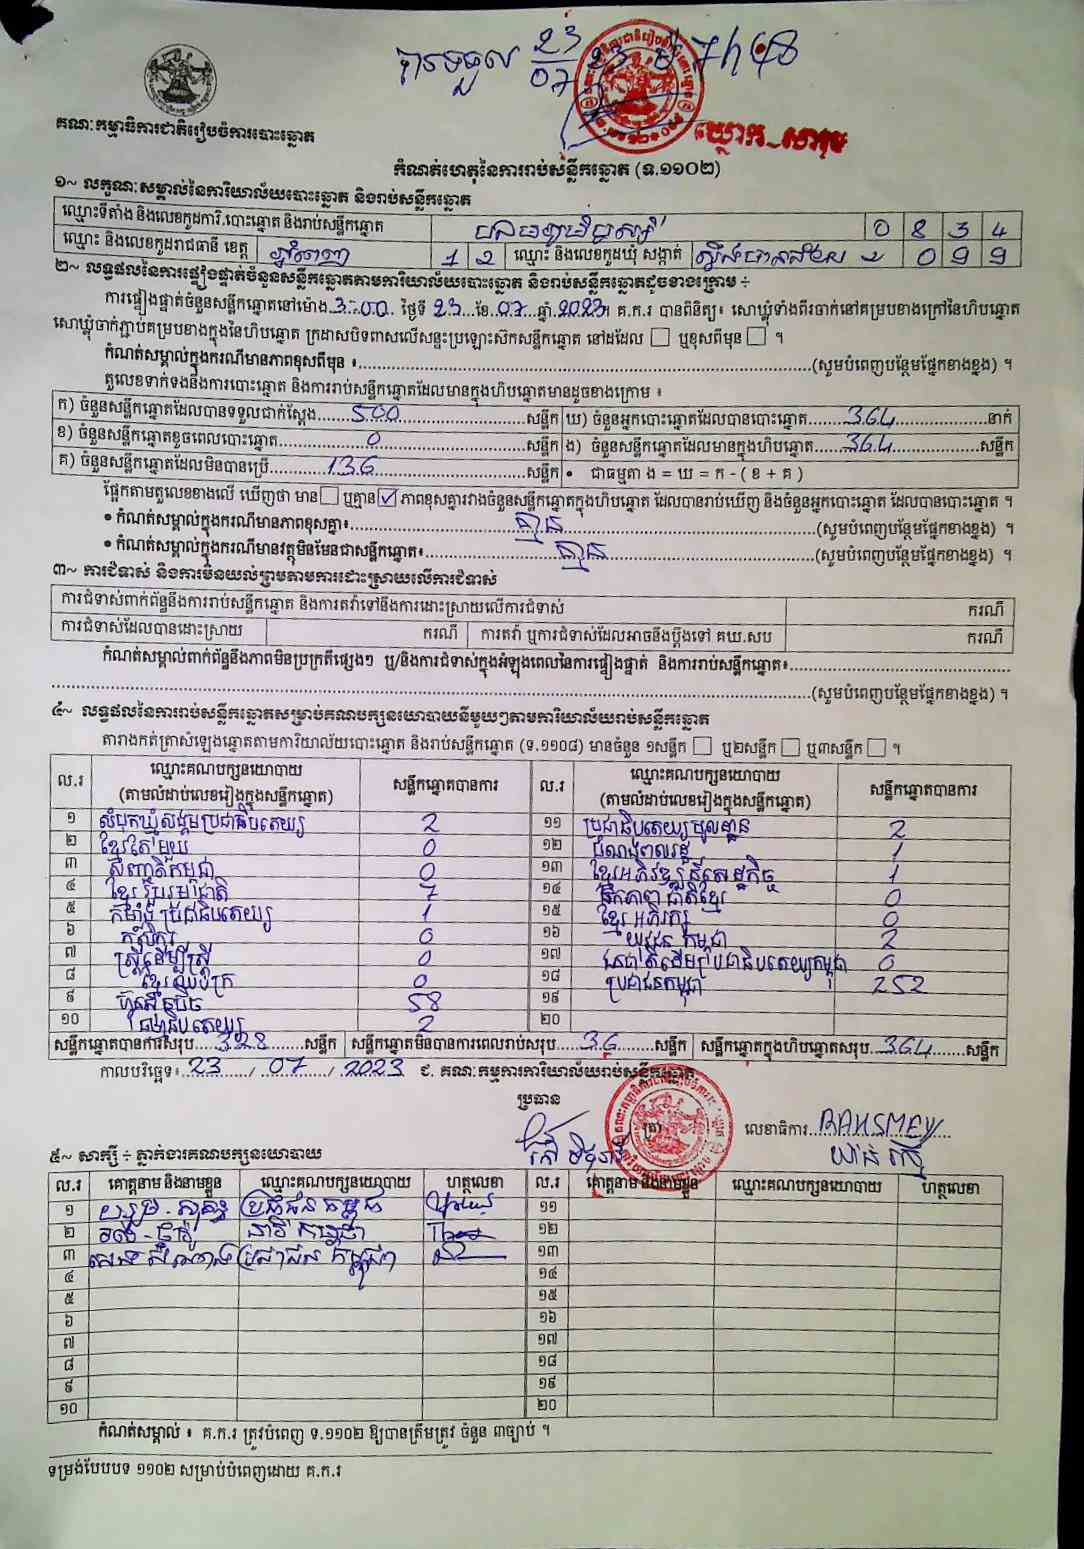 បានទទួល 23/07/23 ម៉ 7h48
ឃ្លោក-សារុម
គណៈកម្មាធិការជាតិរៀបចំការបោះឆ្នោត
កំណត់ហេតុនៃការរាប់សន្លឹកឆ្នោត (ទ.១១០២)
១~ លក្ខណៈសម្គាល់នៃការិយាល័យបោះឆ្នោត និងរាប់សន្លឹកឆ្នោត
ឈ្មោះទីតាំង និងលេខកូដការិ.បោះឆ្នោត និងរាប់សន្លឹកឆ្នោត 0 8 3 4
ឈ្មោះ និងលេខកូដរាជធានី ខេត្ត ភ្នំពេញ 1 2 ឈ្មោះ និងលេខកូដឃុំ សង្កាត់ ស្ទឹងមានជ័យ 2 0 9 9
២~ លទ្ធផលនៃការផ្ទៀងផ្ទាត់ចំនួនសន្លឹកឆ្នោតតាមការិយាល័យបោះឆ្នោត និងរាប់សន្លឹកឆ្នោតដូចខាងក្រោម ÷
ការផ្ទៀងផ្ទាត់ចំនួនសន្លឹកឆ្នោតនៅម៉ោង 3:00 ថ្ងៃទី 23 ខែ 07 ឆ្នាំ 2023។ គ.ក.រ បានពិនិត្យ៖ សោឃ្លុំទាំងពីរចាក់នៅគម្របខាងក្រៅនៃហិបឆ្នោត
សោឃ្លុំចាក់ភ្ជាប់គម្របខាងក្នុងនៃហិបឆ្នោត ក្រដាសបិទពាសលើសន្ទះប្រឡោះស៊កសន្លឹកឆ្នោត នៅដដែល ☐ ឬខុសពីមុន ☐ ។
កំណត់សម្គាល់ក្នុងករណីមានភាពខុសពីមុន ៖ (សូមបំពេញបន្ថែមផ្នែកខាងខ្នង) ។
តួលេខទាក់ទងនឹងការបោះឆ្នោត និងការរាប់សន្លឹកឆ្នោតដែលមានក្នុងហិបឆ្នោតមានដូចខាងក្រោម ៖
ក) ចំនួនសន្លឹកឆ្នោតដែលបានទទួលជាក់ស្តែង 500 សន្លឹក ឃ) ចំនួនអ្នកបោះឆ្នោតដែលបានបោះឆ្នោត 364 នាក់
ខ) ចំនួនសន្លឹកឆ្នោតខូចពេលបោះឆ្នោត 0 សន្លឹក ង) ចំនួនសន្លឹកឆ្នោតដែលមានក្នុងហិបឆ្នោត 364 សន្លឹក
គ) ចំនួនសន្លឹកឆ្នោតដែលមិនបានប្រើ 136 សន្លឹក • ជាធម្មតា ង = ឃ = ក - ( ខ + គ )
ផ្អែកតាមតួលេខខាងលើ ឃើញថា មាន ☐ ឬគ្មាន ☑ ភាពខុសគ្នារវាងចំនួនសន្លឹកឆ្នោតក្នុងហិបឆ្នោត ដែលបានរាប់ឃើញ និងចំនួនអ្នកបោះឆ្នោត ដែលបានបោះឆ្នោត ។
• កំណត់សម្គាល់ក្នុងករណីមានភាពខុសគ្នា៖ គ្មាន (សូមបំពេញបន្ថែមផ្នែកខាងខ្នង) ។
• កំណត់សម្គាល់ក្នុងករណីមានវត្ថុមិនមែនជាសន្លឹកឆ្នោត៖ គ្មាន (សូមបំពេញបន្ថែមផ្នែកខាងខ្នង) ។
៣~ ការជំទាស់ និងការមិនយល់ព្រមតាមការដោះស្រាយលើការជំទាស់
ការជំទាស់ពាក់ព័ន្ធនឹងការរាប់សន្លឹកឆ្នោត និងការតវ៉ាទៅនឹងការដោះស្រាយលើការជំទាស់ ករណី
ការជំទាស់ដែលបានដោះស្រាយ ករណី ការតវ៉ា ឬការជំទាស់ដែលអាចនឹងប្តឹងទៅ គឃ.សប ករណី
កំណត់សម្គាល់ពាក់ព័ន្ធនឹងភាពមិនប្រក្រតីផ្សេងៗ ឬ/និងការជំទាស់ក្នុងអំឡុងពេលនៃការផ្ទៀងផ្ទាត់ និងការរាប់សន្លឹកឆ្នោត៖
(សូមបំពេញបន្ថែមផ្នែកខាងខ្នង) ។
៤~ លទ្ធផលនៃការរាប់សន្លឹកឆ្នោតសម្រាប់គណបក្សនយោបាយនីមួយៗតាមការិយាល័យរាប់សន្លឹកឆ្នោត
តារាងកត់ត្រាសំឡេងឆ្នោតតាមការិយាល័យបោះឆ្នោត និងរាប់សន្លឹកឆ្នោត (ទ.១១០៨) មានចំនួន ១សន្លឹក ☐ ឬ២សន្លឹក ☐ ឬ៣សន្លឹក ☐ ។
ល.រ ឈ្មោះគណបក្សនយោបាយ (តាមលំដាប់លេខរៀងក្នុងសន្លឹកឆ្នោត) សន្លឹកឆ្នោតបានការ ល.រ ឈ្មោះគណបក្សនយោបាយ (តាមលំដាប់លេខរៀងក្នុងសន្លឹកឆ្នោត) សន្លឹកឆ្នោតបានការ
១ សំបុកឃ្មុំសង្គមប្រជាធិបតេយ្យ 2 ១១ ប្រជាធិបតេយ្យមូលដ្ឋាន 2
២ ខ្មែរតែមួយ 0 ១២ ដំណងពលរដ្ឋ 1
៣ សញ្ជាតិកម្ពុជា 0 ១៣ ខ្មែរអភិវឌ្ឍន៍សេដ្ឋកិច្ច 1
៤ ខ្មែររួបរួមជាតិ 7 ១៤ ឯកភាពជាតិខ្មែរ 0
៥ កម្លាំងប្រជាធិបតេយ្យ 1 ១៥ ខ្មែរអភិរក្ស 0
៦ កសិករ 0 ១៦ យុវជនកម្ពុជា 2
៧ ស្ត្រីដើម្បីស្ត្រី 0 ១៧ រួបរួមជាតិដើម្បីប្រជាធិបតេយ្យកម្ពុជា 0
៨ ខ្មែរឈប់ក្រ 0 ១៨ ប្រជាជនកម្ពុជា 252
៩ ហ៊្វុនស៊ិនប៉ិច 58 ១៩
១០ ធម្មាធិបតេយ្យ 2 ២០
សន្លឹកឆ្នោតបានការសរុប 328 សន្លឹក សន្លឹកឆ្នោតមិនបានការពេលរាប់សរុប 36 សន្លឹក សន្លឹកឆ្នោតក្នុងហិបឆ្នោតសរុប 364 សន្លឹក
កាលបរិច្ឆេទ៖ 23 / 07 / 2023 ជ. គណៈកម្មការការិយាល័យរាប់សន្លឹកឆ្នោត
ប្រធាន
ត្រា លេខាធិការ RAKSMEY
៥~ សាក្សី ÷ ភ្នាក់ងារគណបក្សនយោបាយ
ល.រ គោត្តនាម និងនាមខ្លួន ឈ្មោះគណបក្សនយោបាយ ហត្ថលេខា ល.រ គោត្តនាម និងនាមខ្លួន ឈ្មោះគណបក្សនយោបាយ ហត្ថលេខា
១ ប្រជាជនកម្ពុជា ១១
២ ១២
៣ ប្រជាជនកម្ពុជា ១៣
៤ ១៤
៥ ១៥
៦ ១៦
៧ ១៧
៨ ១៨
៩ ១៩
១០ ២០
កំណត់សម្គាល់ ៖ គ.ក.រ ត្រូវបំពេញ ទ.១១០២ ឱ្យបានត្រឹមត្រូវ ចំនួន ៣ច្បាប់ ។
ទម្រង់បែបបទ ១១០២ សម្រាប់បំពេញដោយ គ.ក.រ